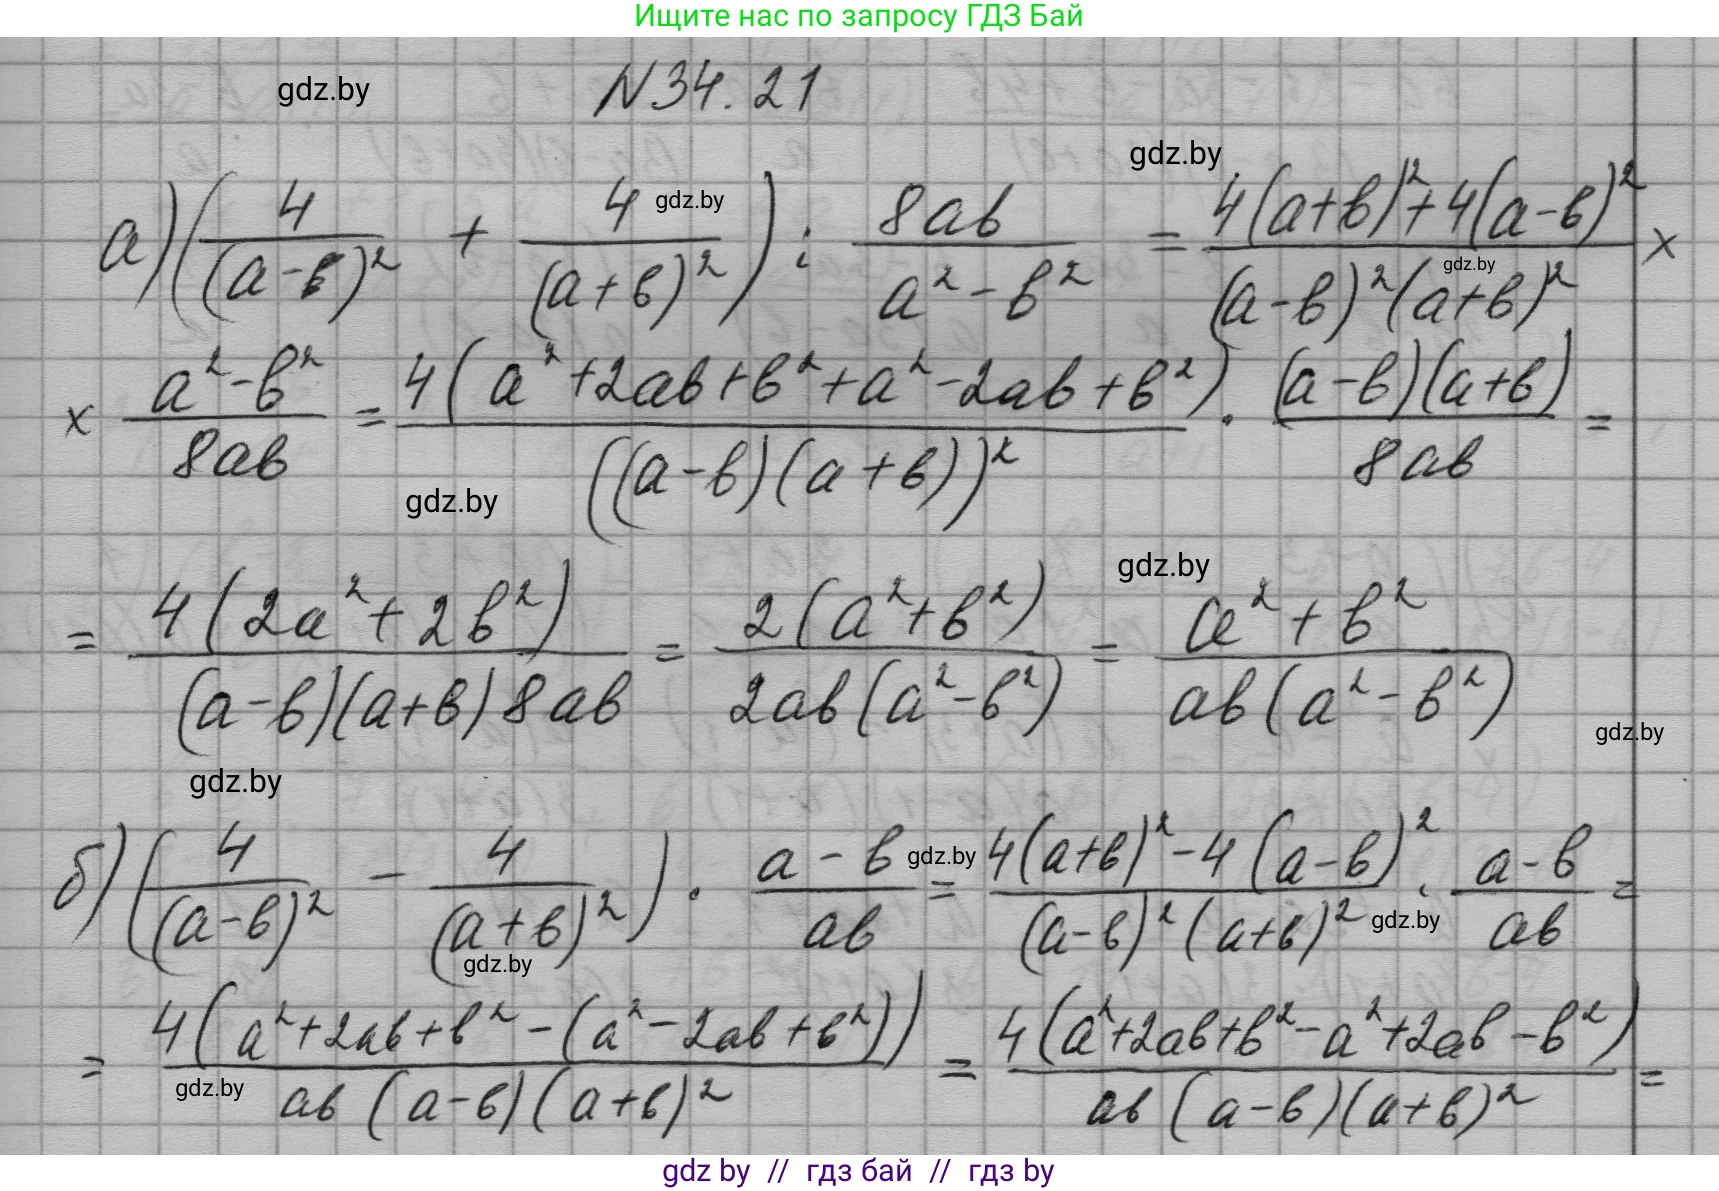 Ищите нас по запросу ГДЗ Бай
gdz.by
N34.21
gdz.by
а) (4/(a-b)² + 4/(a+b)²) : 8ab/(a²-b²) = (4(a+b)²+4(a-b)²)/((a-b)²(a+b)²) ×
gdz.by
gdz.by
× (a²-b²)/(8ab) = 4(a²+2ab+b²+a²-2ab+b²)/((a-b)(a+b))² · (a-b)(a+b)/(8ab) =
gdz.by
gdz.by
= 4(2a²+2b²)/((a-b)(a+b)8ab) = 2(a²+b²)/(2ab(a²-b²)) = (a²+b²)/(ab(a²-b²))
gdz.by
gdz.by
б) (4/(a-b)² - 4/(a+b)²) · (a-b)/(ab) = (4(a+b)²-4(a-b)²)/((a-b)²(a+b)²) · (a-b)/(ab) =
gdz.by
gdz.by
gdz.by
= 4(a²+2ab+b²-(a²-2ab+b²))/(ab(a-b)(a+b)²) = 4(a²+2ab+b²-a²+2ab-b²)/(ab(a-b)(a+b)²) =
gdz.by
gdz by // гдз бай // гдз by